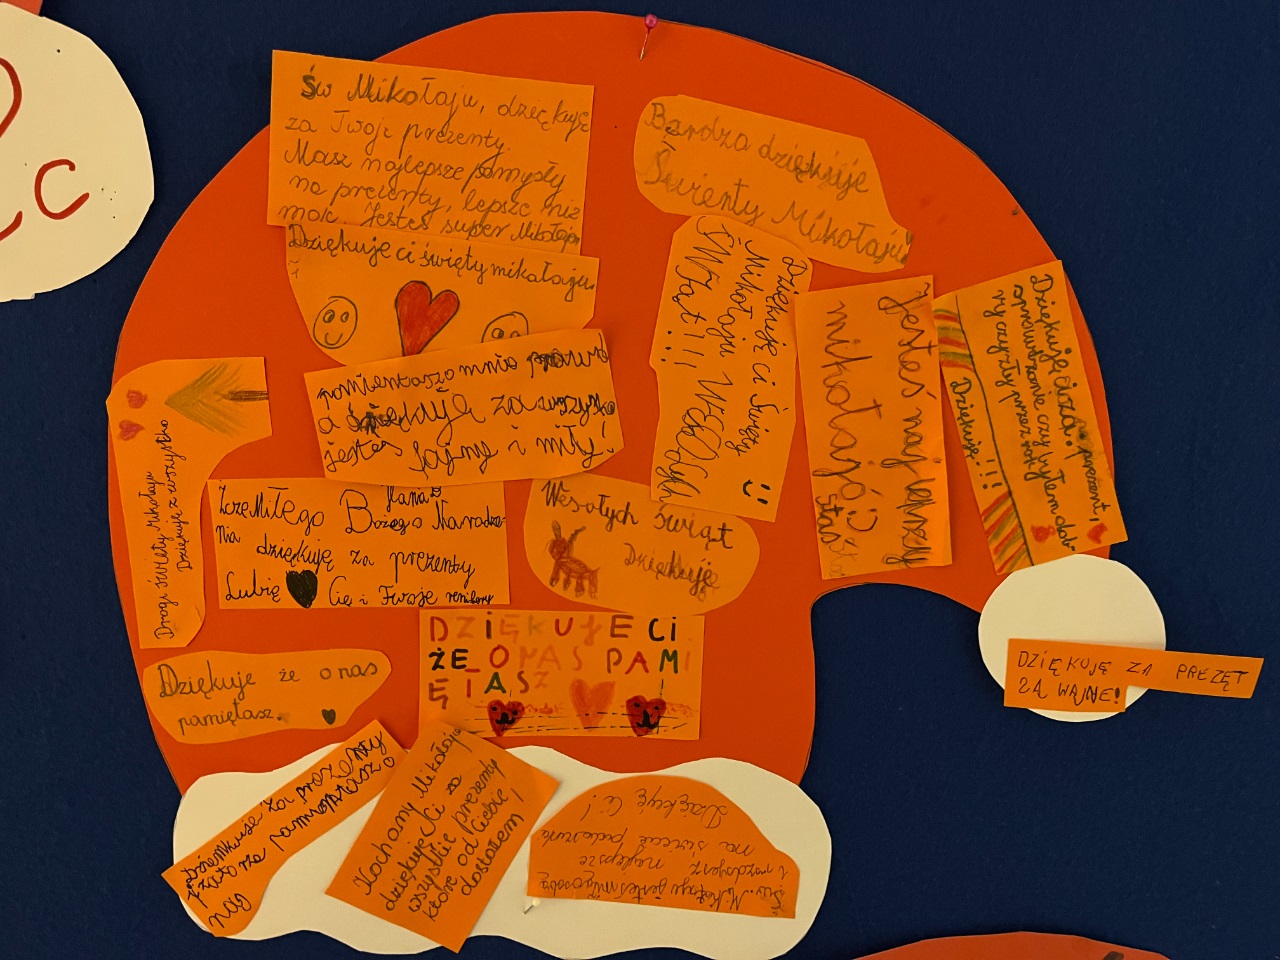 św Mikołaju, dziękuję
za Twoje prezenty.
Masz najlepsze pomysły
na prezenty, lepsze niż
mok Jesteś super Mikołaju
Bardza dziękuje
Świenty Mikołaju
Dziękuje ci święty mikałaju.
Dziękuję ci Święty
Mikołaju Wesołych
ŚWIąt!!!
Jesteś naj lepszy
mikołają
Dziękuję ci za prezent,
sprawdzenie czy byłem dob
ry czy zły przez rok
Dziękuję!!!
pamientaszo mnie prawd
a dziękuję za wszysko
jesteś fajny i miły!
Drogi święty Mikołaju
Dziękuje z wszystko
Miłego Bożego Narodze-
nia dziękuję za prezenty
Lubię Cię i Twoje renifery
Wesołych świąt
Dziękuję
DZIĘKUJE CI
ŻE O NAS PAMI
ĘTASZ
Dziękuje że o nas
pamiętasz.
DZIĘKUJĘ ZA PREZĘT
ZA WAJNE!
za prezenty
nas
Kochany Mikołaju
dziękuję Ci za
wszystkie prezenty
które od Ciebie
dostałem!
Św. Mikołaju jesteś miłą osobą
i rozdajesz najlepsze
na świecie
Dziękuję Ci!